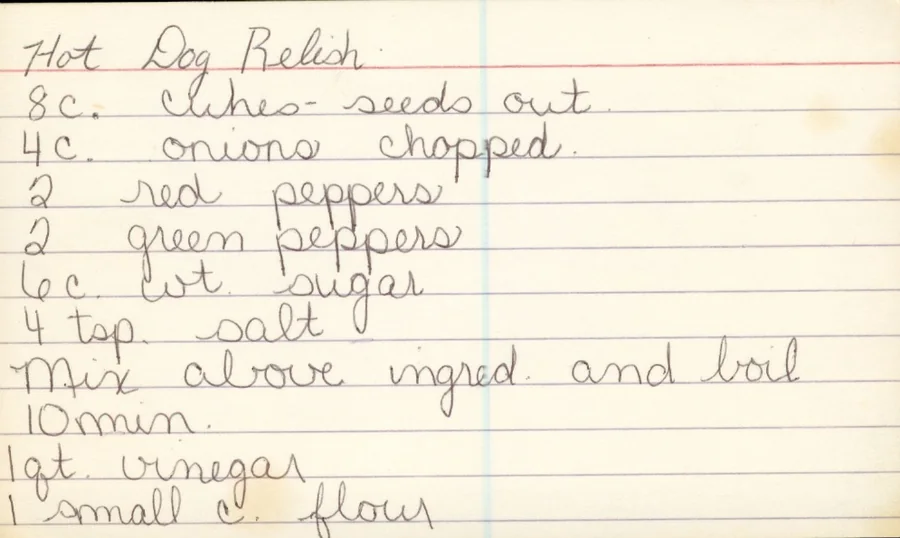 Hot Dog Relish
8 c. cukes - seeds out.
4 c. onions chopped.
2 red peppers
2 green peppers
6 c. wt. sugar
4 tsp. salt
Mix above ingred. and boil
10 min.
1 qt. vinegar
1 small c. flour